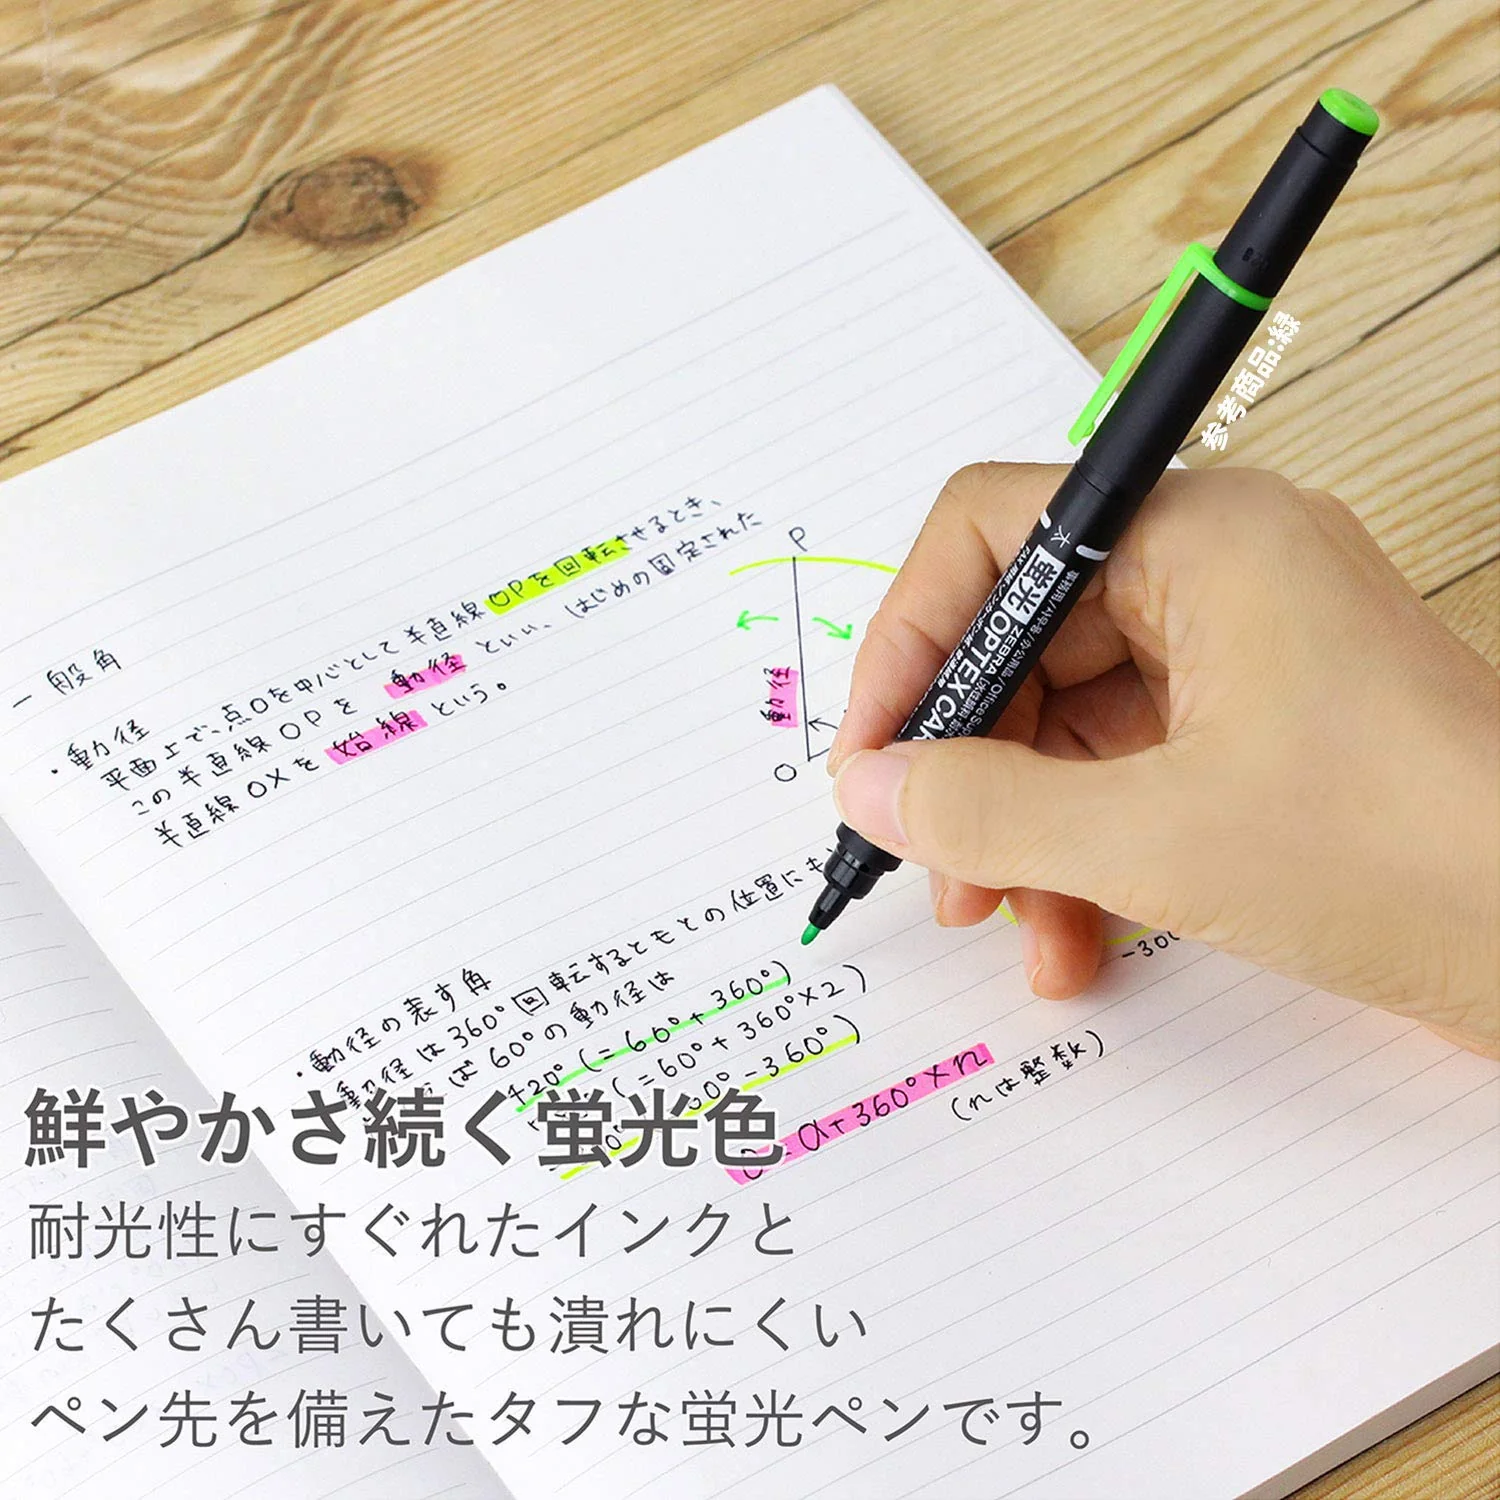 参考商品:緑
太
蛍光 OPTEX CAR
ZEBRA
事務用/사무용/办公用品/Office Sup
一般角
・動径
平面上で、点Oを中心として半直線OPを回転させるとき、
この半直線OPを 動径 といい、はじめの固定された
半直線OXを 始線 という。
P
動径
O
・動径の表す角
動径は360°回転するともとの位置にも
ば60°の動径は
420°(=60°+360°)
(=60°+360°×2)
60°-360°)
= α+360°×n
(nは整数)
-300
鮮やかさ続く蛍光色
耐光性にすぐれたインクと
たくさん書いても潰れにくい
ペン先を備えたタフな蛍光ペンです。